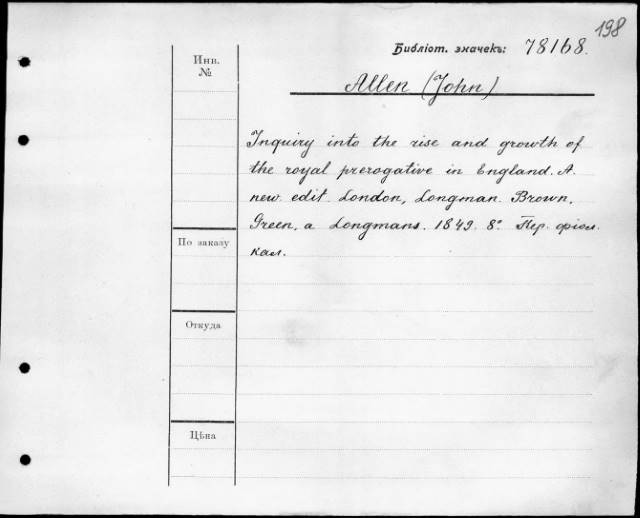 198
Библіот. значекъ: 78168.
Инв.
№
Allen (John)
Inquiry into the rise and growth of
the royal prerogative in England. A
new edit. London, Longman. Brown,
Green, a Longmans. 1849. 8° Пер. фіол.
кал.
По заказу
Откуда
Цѣна